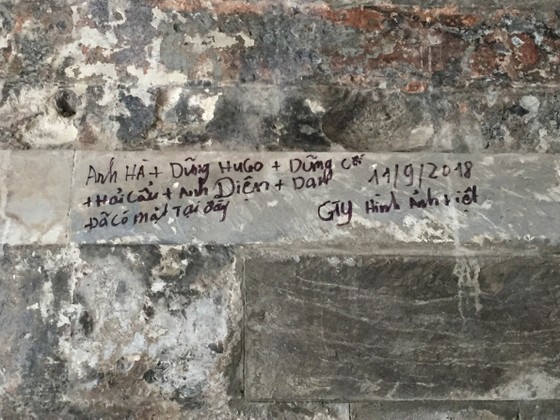 Anh HÀ + DŨNG HUGO + DŨNG CÒI 11/9/2018
+ HẢI CẨU + ANH DIỆN + DAN
+ ĐÃ CÓ MẶT TẠI ĐÂY CTY Hình Ảnh Việt